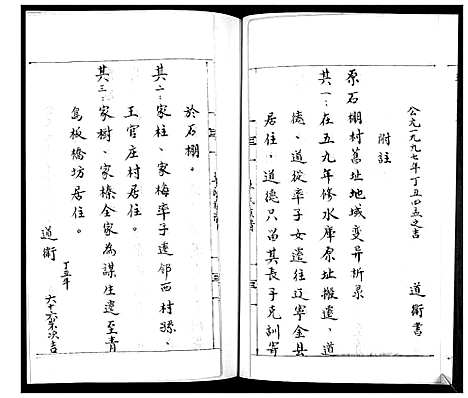 公元一九九七年丁丑四孟之吉
道衛書
附註
原石棚村舊址地域變异折录
其一:在五九年修水庫原址搬遷,道
德、道從率子女遷往辽宁金县
居住,道德只留其長子克訓寄
於石棚。
其二:家柱、家梅率子遷邻西村孫、
王官庄村居住。
其三:家樹、家榛全家為謀生遷至青
島板橋坊居住。
道衛
丁丑年
六十六叟次吉